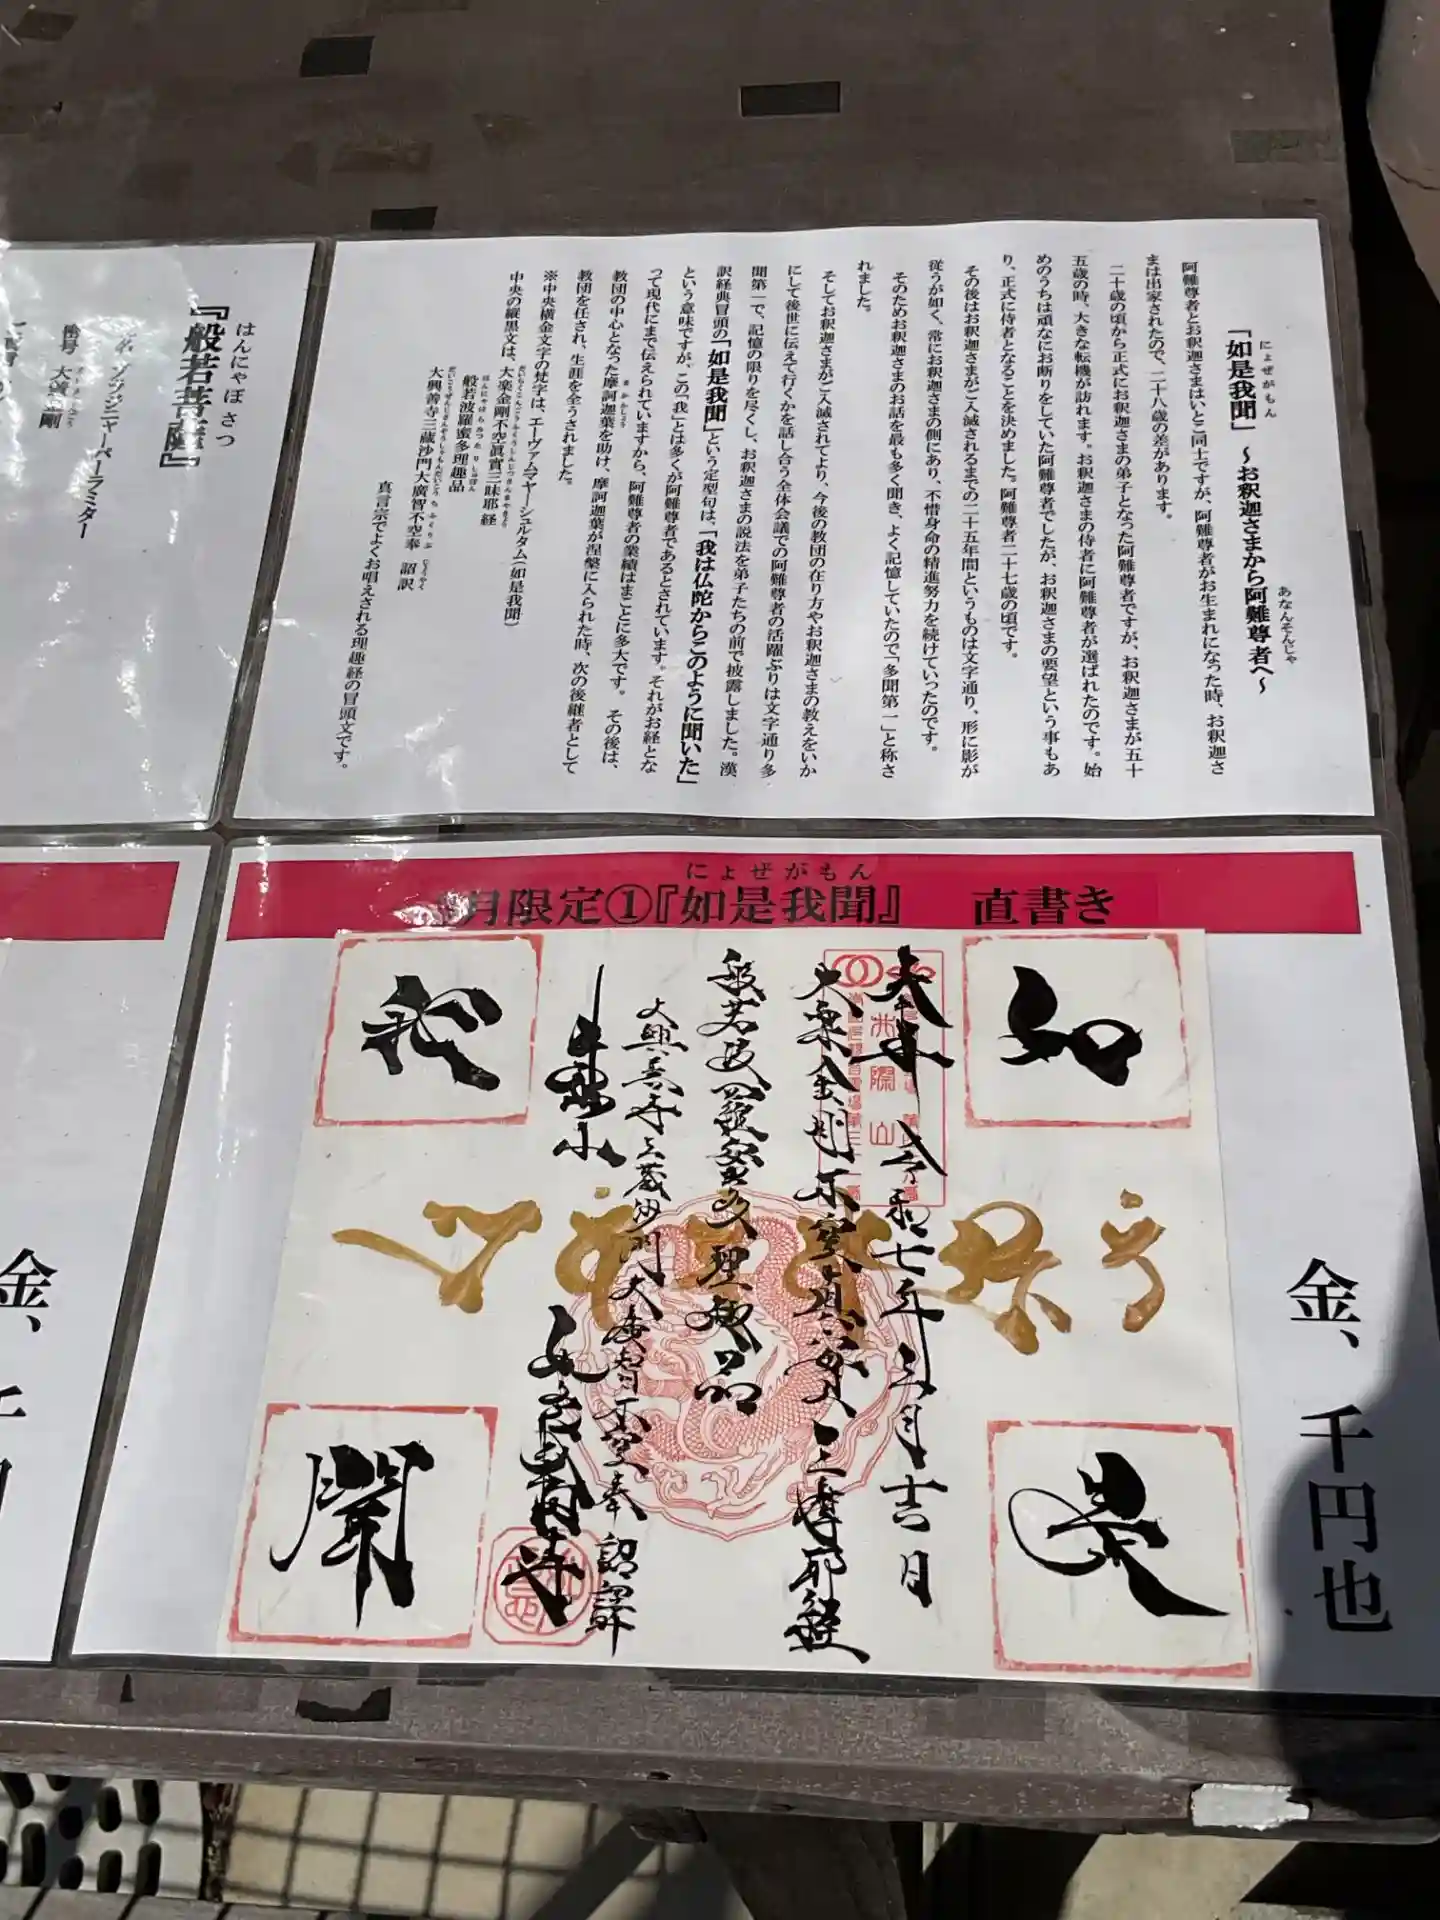 にょぜがもん
「如是我聞」 ～お釈迦さまから阿難尊者へ～
あなんそんじゃ
阿難尊者とお釈迦さまはいとこ同士ですが、阿難尊者がお生まれになった時、お釈迦さ
まは出家されたので、二十八歳の差があります。
二十歳の頃から正式にお釈迦さまの弟子となった阿難尊者ですが、お釈迦さまが五十
五歳の時、大きな転機が訪れます。お釈迦さまの侍者に阿難尊者が選ばれたのです。始
めのうちは頑なにお断りをしていた阿難尊者でしたが、お釈迦さまの要望という事もあ
り、正式に侍者となることを決めました。阿難尊者二十七歳の頃です。
その後はお釈迦さまがご入滅されるまでの二十五年間というものは文字通り、形に影が
従うが如く、常にお釈迦さまの側にあり、不惜身命の精進努力を続けていったのです。
そのためお釈迦さまのお話を最も多く聞き、よく記憶していたので「多聞第一」と称さ
れました。
そしてお釈迦さまがご入滅されてより、今後の教団の在り方やお釈迦さまの教えをいか
にして後世に伝えて行くかを話し合う全体会議での阿難尊者の活躍ぶりは文字通り多
聞第一で、記憶の限りを尽くし、お釈迦さまの説法を弟子たちの前で披露しました。漢
訳経典冒頭の「如是我聞」という定型句は、「我は仏陀からこのように聞いた」
という意味ですが、この「我」とは多くが阿難尊者であるとされています。それがお経とな
って現代にまで伝えられていますから、阿難尊者の業績はまことに多大です。 その後は、
まかかしょう
教団の中心となった摩訶迦葉を助け、摩訶迦葉が涅槃に入られた時、次の後継者として
教団を任され、生涯を全うされました。
※中央横金文字の梵字は、エーヴァムマヤーシュルタム(如是我聞)
中央の縦黒文は、大楽金剛不空真實三昧耶経
般若波羅蜜多理趣品
大興善寺三蔵沙門大廣智不空奉 詔訳
真言宗でよくお唱えされる理趣経の冒頭文です。
はんにゃぼさつ
『般若菩薩』
にょぜがもん
月限定①『如是我聞』 直書き
如
是
我
聞
奉拝 令和七年三月吉日
大楽金剛不空真實三摩耶経
般若波羅蜜多理趣品
大興善寺三蔵沙門大廣智不空奉 詔譯
金、千円也
金、